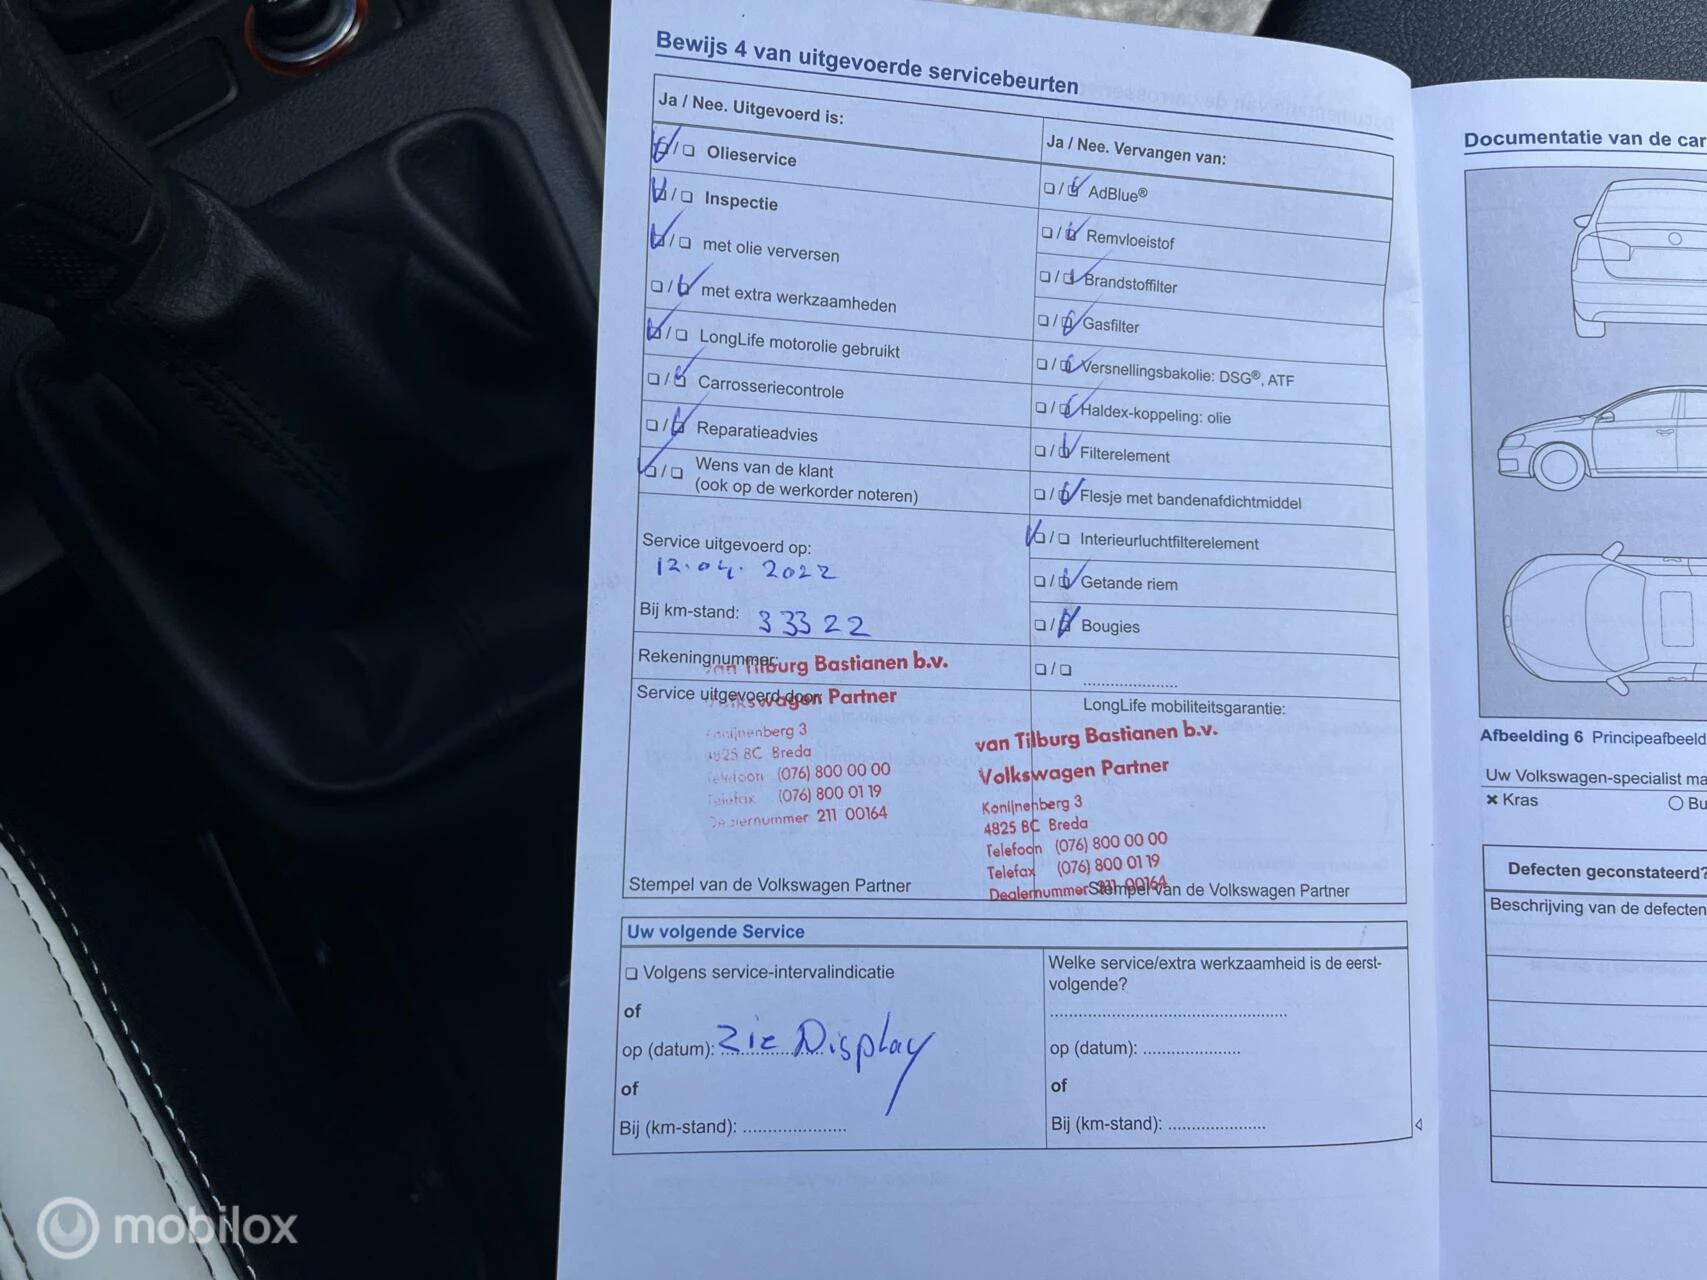 Bewijs 4 van uitgevoerde servicebeurten
Ja / Nee. Uitgevoerd is:
Olieservice
Inspectie
met olie verversen
met extra werkzaamheden
LongLife motorolie gebruikt
Carrosseriecontrole
Reparatieadvies
Wens van de klant
(ook op de werkorder noteren)
Service uitgevoerd op:
12.04.2022
Bij km-stand: 33322
Rekeningnummer:
van Tilburg Bastianen b.v.
Service uitgevoerd door:
Volkswagen Partner
Konijnenberg 3
4825 BC Breda
Telefoon (076) 800 00 00
Telefax (076) 800 01 19
Dealernummer 211 00164
Stempel van de Volkswagen Partner
Ja / Nee. Vervangen van:
AdBlue®
Remvloeistof
Brandstoffilter
Gasfilter
Versnellingsbakolie: DSG®, ATF
Haldex-koppeling: olie
Filterelement
Flesje met bandenafdichtmiddel
Interieurluchtfilterelement
Getande riem
Bougies
....................
LongLife mobiliteitsgarantie:
van Tilburg Bastianen b.v.
Volkswagen Partner
Konijnenberg 3
4825 BC Breda
Telefoon (076) 800 00 00
Telefax (076) 800 01 19
Dealernummer 211 00164
Stempel van de Volkswagen Partner
Uw volgende Service
Volgens service-intervalindicatie
of
op (datum): Zie Display
of
Bij (km-stand): ......................
Welke service/extra werkzaamheid is de eerst-
volgende?
..................................................
op (datum): .....................
of
Bij (km-stand): .....................
Documentatie van de car
Afbeelding 6 Principeafbeeld
Uw Volkswagen-specialist ma
Kras
Bu
Defecten geconstateerd?
Beschrijving van de defecten
mobilox